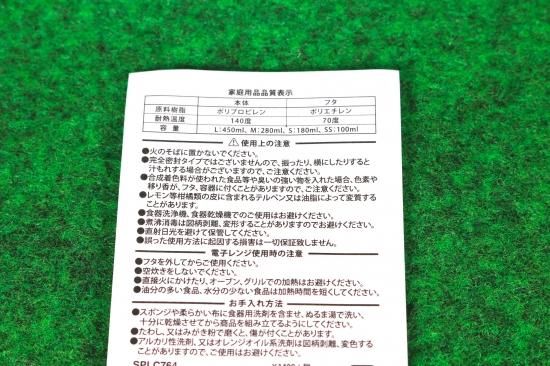 家庭用品品質表示
本体 フタ
原料樹脂 ポリプロピレン ポリエチレン
耐熱温度 140度 70度
容量 L:450ml、M:280ml、S:180ml、SS:100ml
⚠使用上の注意
●火のそばに置かないでください。
●完全密封タイプではございませんので、振ったり、横にしたりすると
汁もれする場合がございますので、ご注意ください。
●合成着色料が使われた食品等や臭いの強い物を入れた場合、色素や
移り香が、フタ、容器に付くことがありますので、ご注意ください。
●レモン等柑橘類の皮に含まれるテルペン又は油脂によって変質する
ことがあります。
●食器洗浄機、食器乾燥機でのご使用はお避けください。
●煮沸消毒は図柄剥離、変形することがありますのでお避けください。
●直射日光を避けて保管してください。
●誤った使用方法に起因する損害は一切保証致しません。
電子レンジ使用時の注意
●フタを外してからご使用ください。
●空炊きをしないでください。
●直接火にかけたり、オーブン、グリルでの加熱はお避けください。
●油分の多い食品、水分の少ない食品は加熱時間を短くしてください。
お手入れ方法
●スポンジや柔らかい布に食器用洗剤を含ませ、ぬるま湯で洗い、
十分に乾燥させてから商品を組み立てるようにしてください。
●たわし、又はみがき粉で磨くと、傷が付くことがあります。
●アルカリ性洗剤、又はオレンジオイル系洗剤は図柄剥離、変色する
ことがありますので、お避けください。
SPLC764